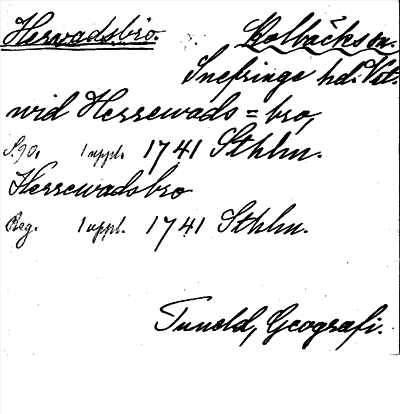 Herwadsbro. Kolbäcks sn.
Snefringe hd. Vstm.
wid Herrewads=bro,
S. 90. 1 uppl. 1741 Sthlm.
Herrewadsbro
Reg. 1 uppl. 1741 Sthlm.
Tuneld, Geografi.